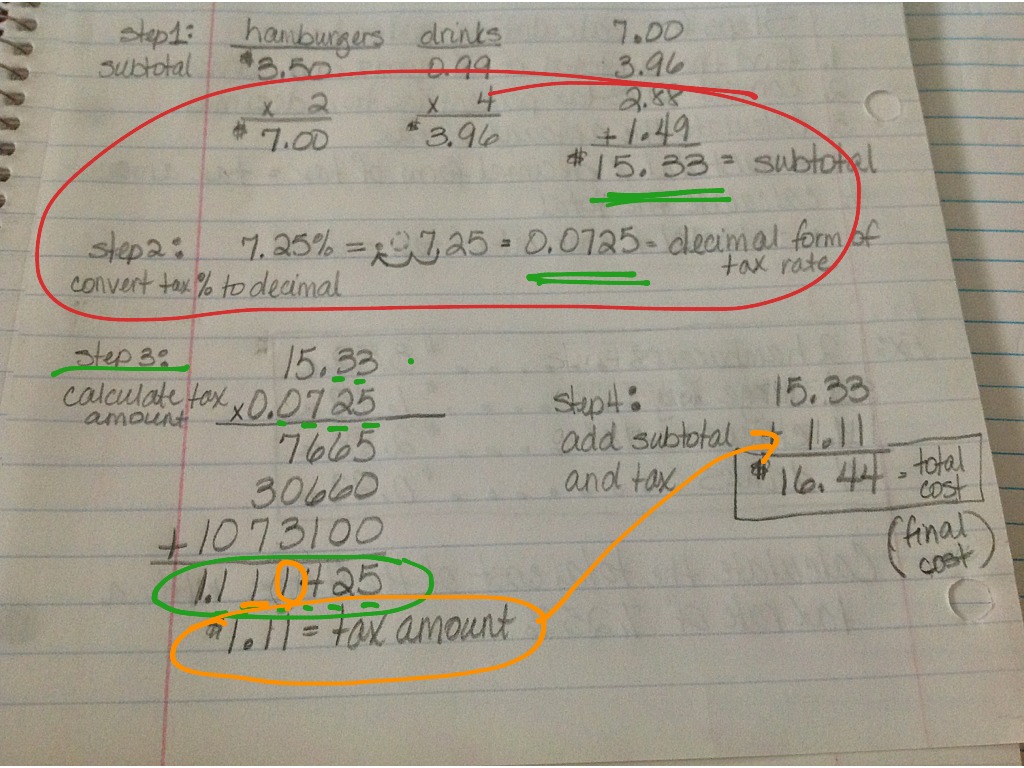 step1: hamburgers drinks 7.00
subtotal $3.50 0.99 3.96
x 2 x 4 2.88
$7.00 $3.96 +1.49
$15.33 = subtotal
step2: 7.25% = 7.25 = 0.0725 = decimal form of
convert tax % to decimal tax rate
step3: 15.33
calculate tax x0.0725
amount
7665
30660
+1073100
1.111425
$1.11 = tax amount
step4: 15.33
add subtotal + 1.11
and tax $16.44 = total
cost
(final
cost)